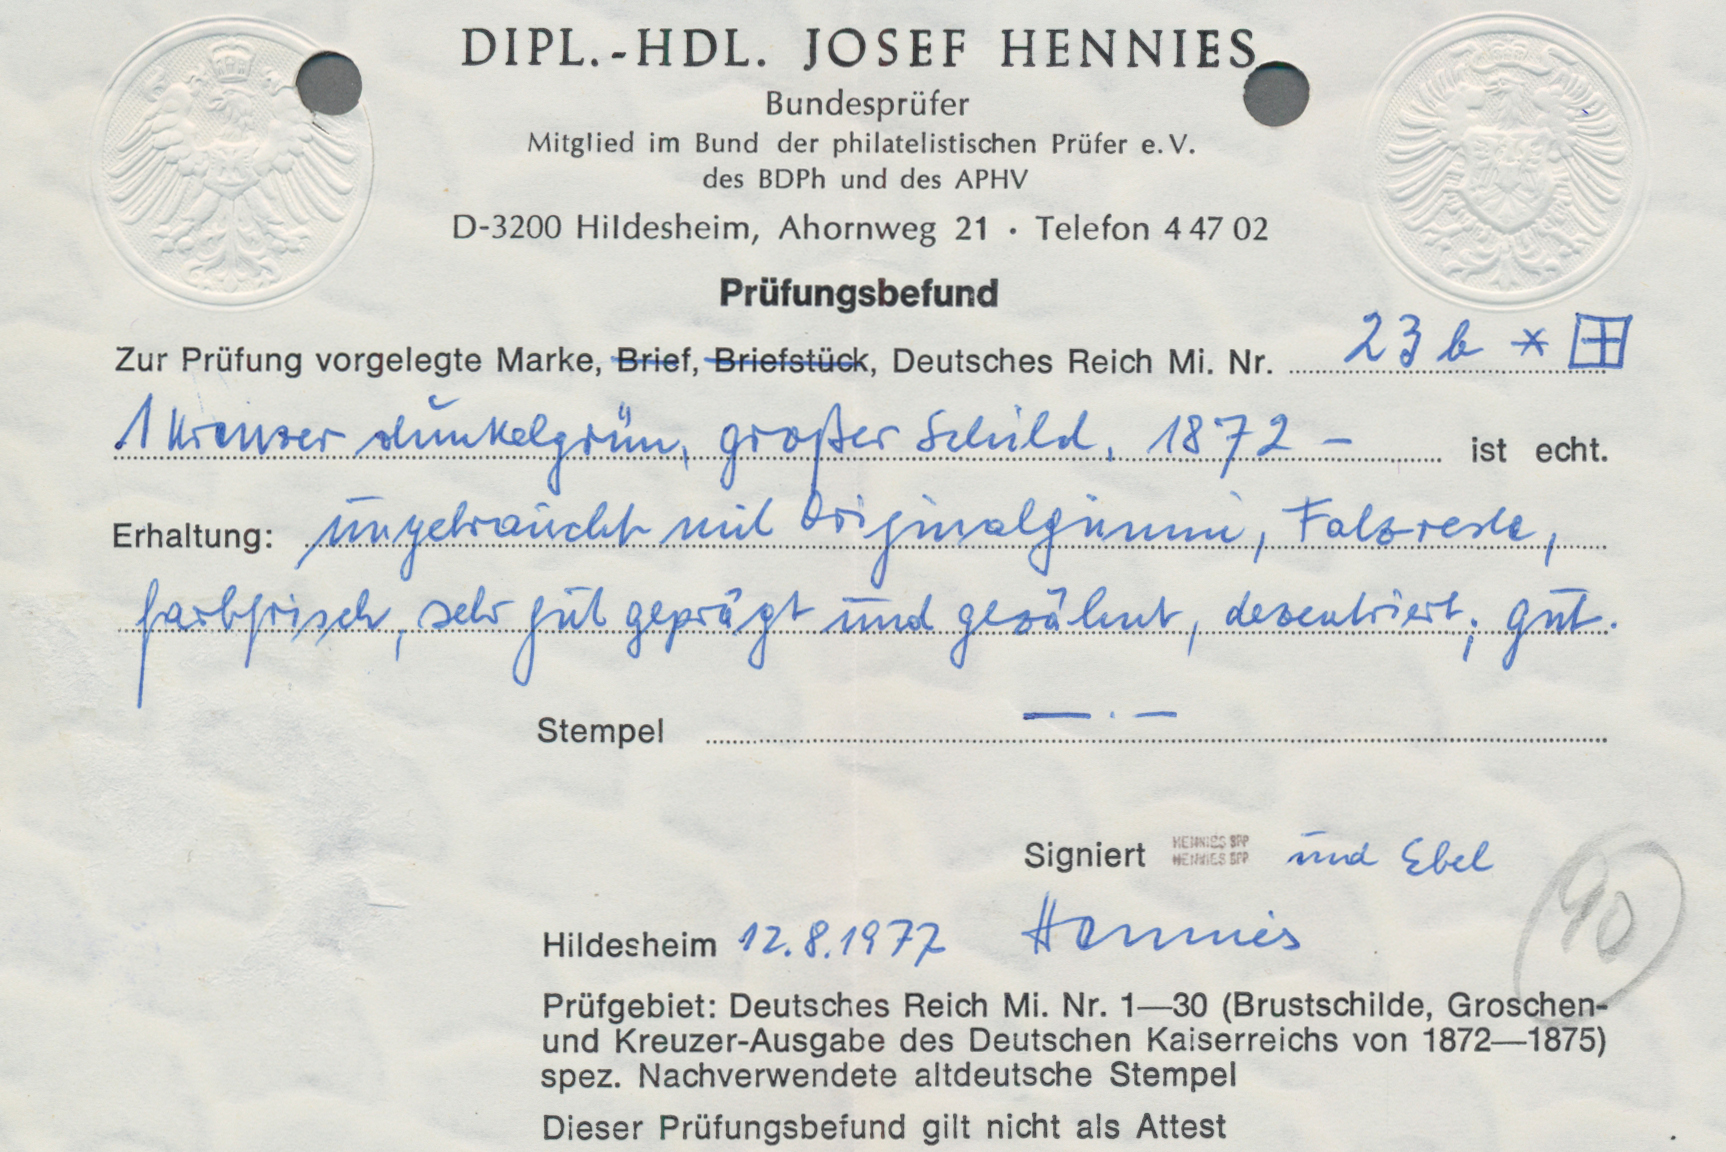 DIPL.-HDL. JOSEF HENNIES
Bundesprüfer
Mitglied im Bund der philatelistischen Prüfer e. V.
des BDPh und des APHV
D-3200 Hildesheim, Ahornweg 21 · Telefon 4 47 02
Prüfungsbefund
Zur Prüfung vorgelegte Marke, Brief, Briefstück, Deutsches Reich Mi. Nr. 23 b * ⊞
1 Kreuzer dunkelgrün, großer Schild, 1872 – ist echt.
Erhaltung: ungebraucht mit Originalgummi, Falzreste,
farbfrisch, sehr gut geprägt und gezähnt, dezentriert; gut.
Stempel — . —
Signiert HENNIES BPP und Ebel
HENNIES BPP
Hildesheim 12.8.1977 Hennies
90
Prüfgebiet: Deutsches Reich Mi. Nr. 1—30 (Brustschilde, Groschen-
und Kreuzer-Ausgabe des Deutschen Kaiserreichs von 1872—1875)
spez. Nachverwendete altdeutsche Stempel
Dieser Prüfungsbefund gilt nicht als Attest